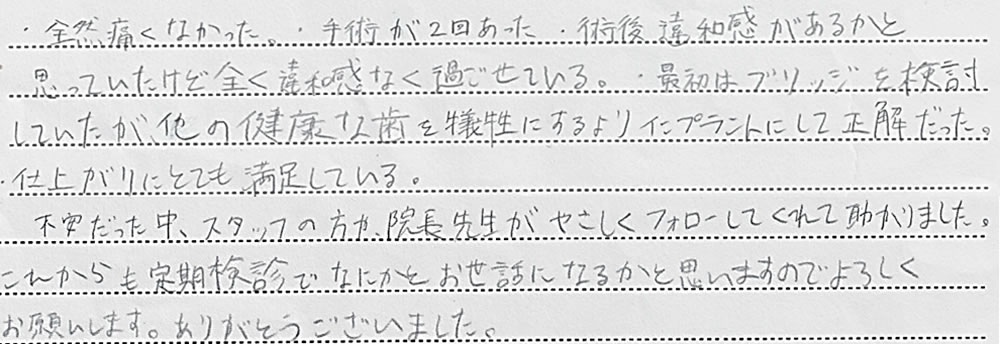 ・全然痛くなかった。・手術が2回あった・術後違和感があるかと
思っていたけど全く違和感なく過ごせている。・最初はブリッジを検討
していたが、他の健康な歯を犠牲にするよりインプラントにして正解だった。
・仕上がりにとても満足している。
不安だった中、スタッフの方か、院長先生がやさしくフォローしてくれて助かりました。
これからも定期検診でなにかとお世話になるかと思いますのでよろしく
お願いします。ありがとうございました。